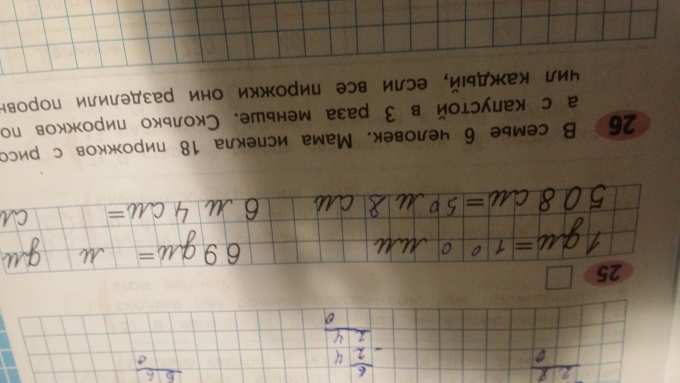 6
- 24
24
0
25
1 дм = 100 мм 69 дм = м дм
508 см = 50 м 8 см 6 м 4 см = см
26 В семье 6 человек. Мама испекла 18 пирожков с рисо
а с капустой в 3 раза меньше. Сколько пирожков по
чил каждый, если все пирожки они разделили поровн